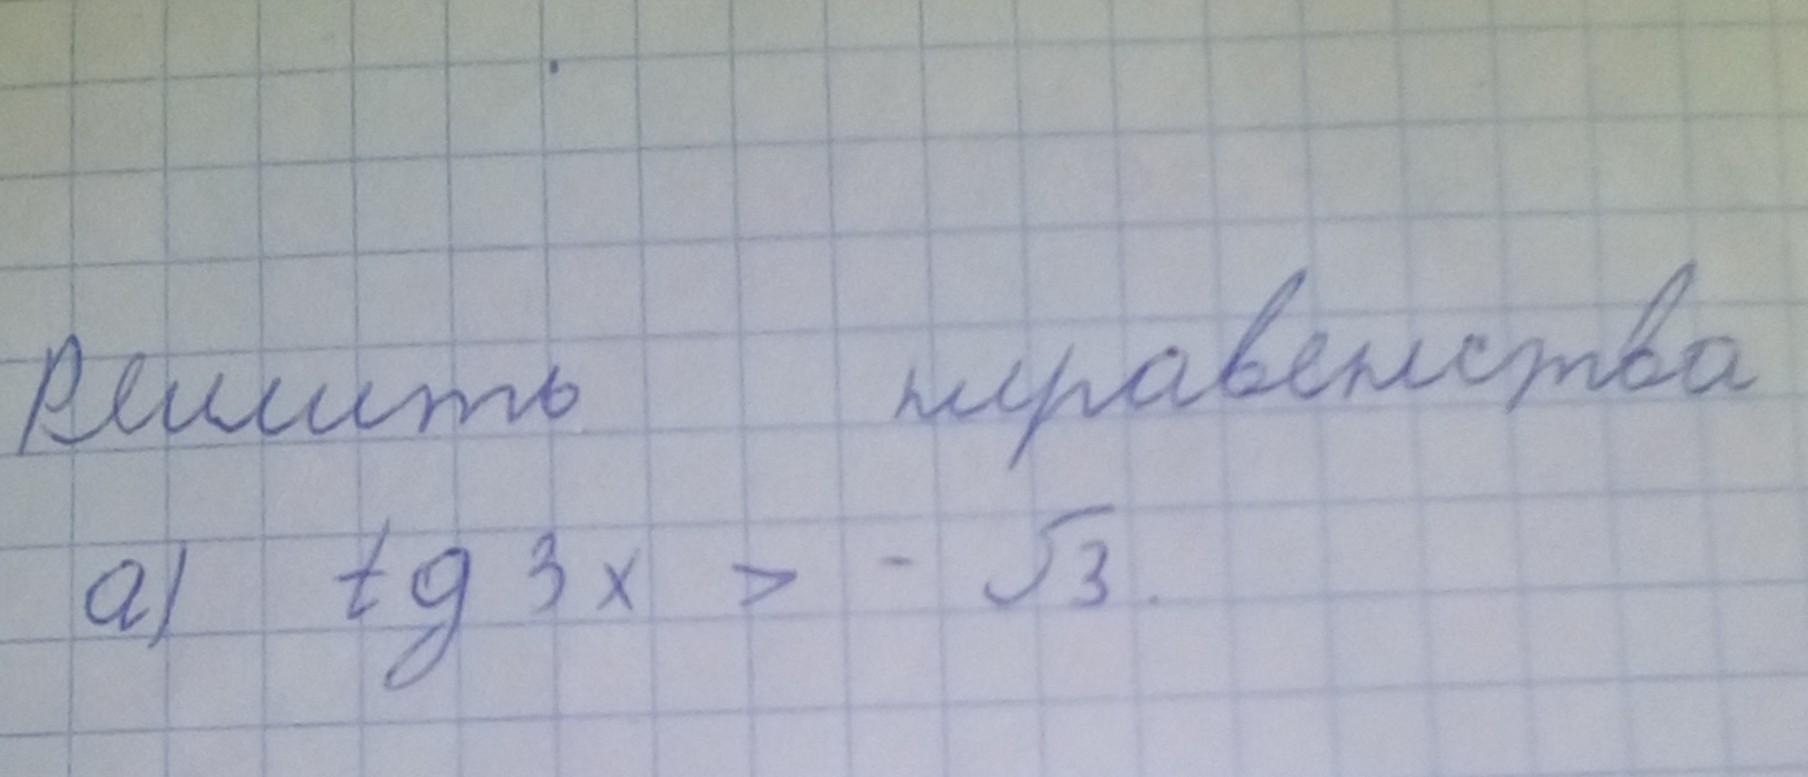 Решить неравенства
а) tg 3x > - √3.